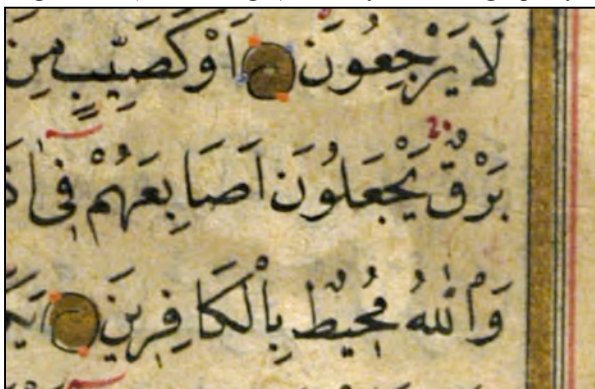 لَا يَرْجِعُونَ اَوْ كَصَيِّبٍ مِنَ
بَرْقٌ يَجْعَلُونَ اَصَابِعَهُمْ فِى
وَاللّٰهُ مُحِيطٌ بِالْكَافِرِينَ